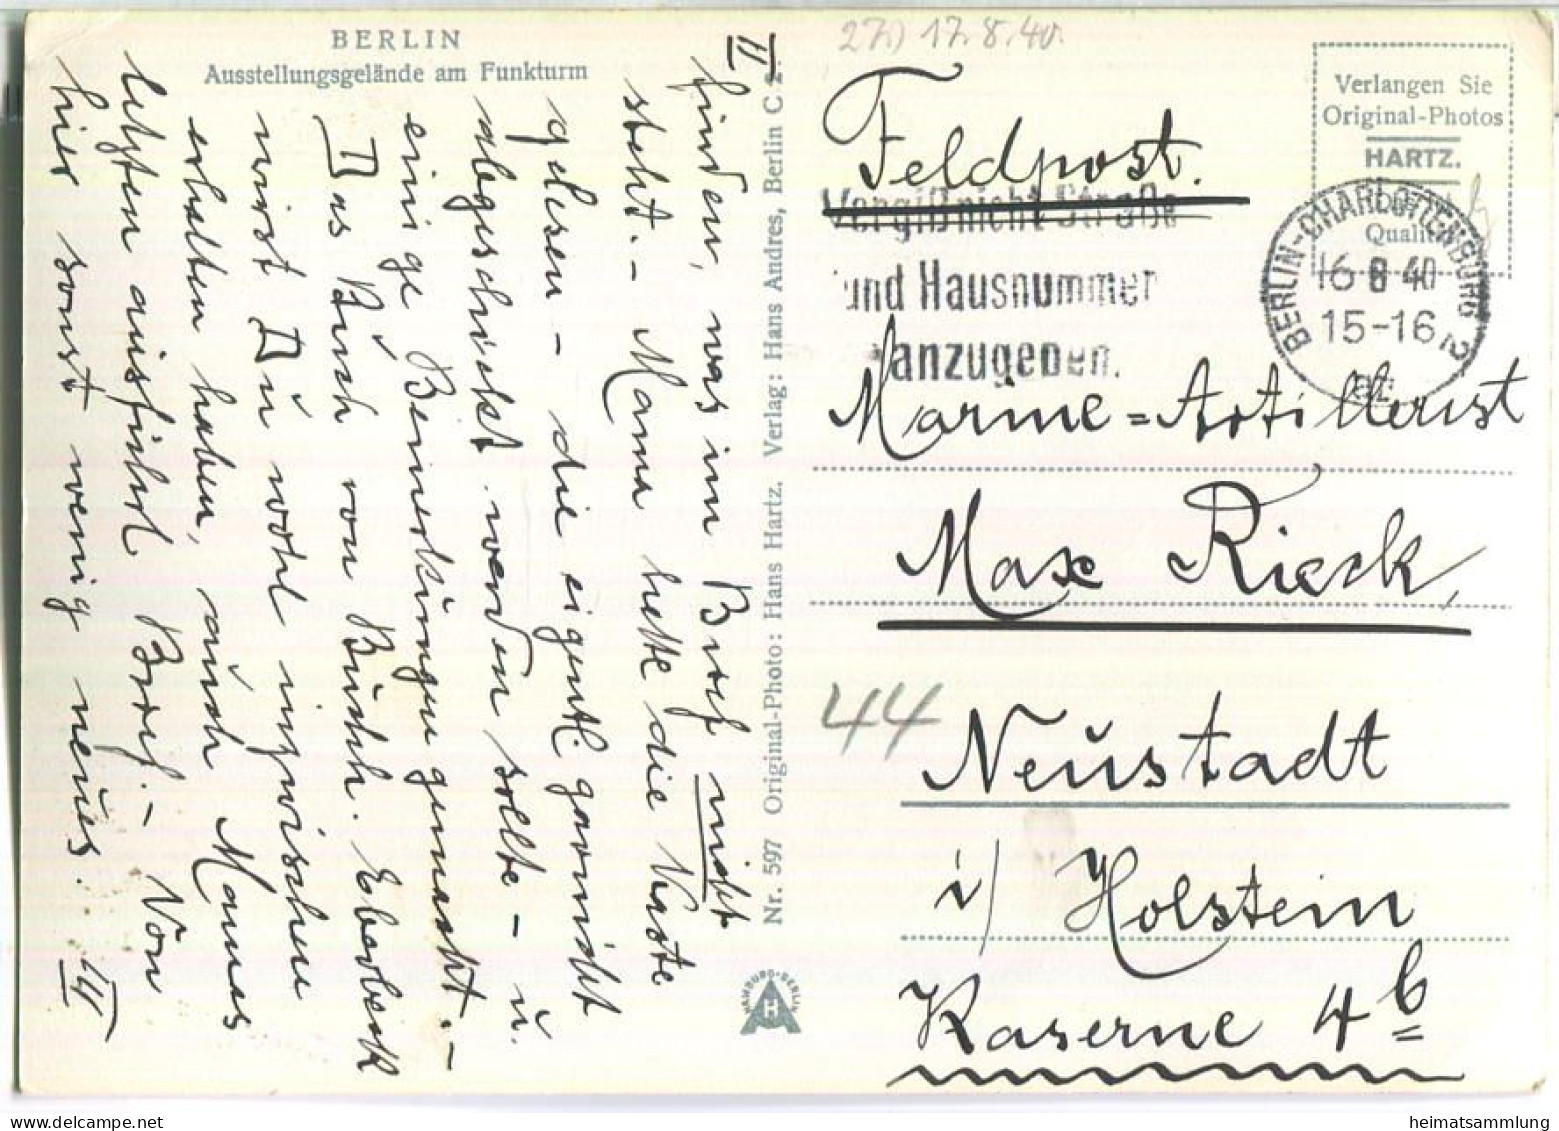 BERLIN
Ausstellungsgelände am Funkturm
II
finden, was im Brief nicht
steht. - Mama hatte die Karte
gelesen - die eigentl. garnicht
abgeschickt werden sollte - u.
einige Bemerkungen gemacht. -
Das Buch von Busch.
wirst Du wohl inzwischen
erhalten haben, auch Mamas
letzten ausführl. Brief. - Von
hier sonst wenig neues. III
Nr. 597 Original-Photo: Hans Hartz. Verlag: Hans Andres, Berlin C 2.
HAMBURG-BERLIN
H
27.) 17.8.40.
Feldpost.
Vergiß nicht Straße
und Hausnummer
anzugeben.
Verlangen Sie
Original-Photos
HARTZ.
Qualität
BERLIN-CHARLOTTENBURG 2
16 8 40
15-16
az
Marine=Artillerist
Max Rieck,
44
Neustadt
i/ Holstein
Kaserne 4 b
heimatsammlung